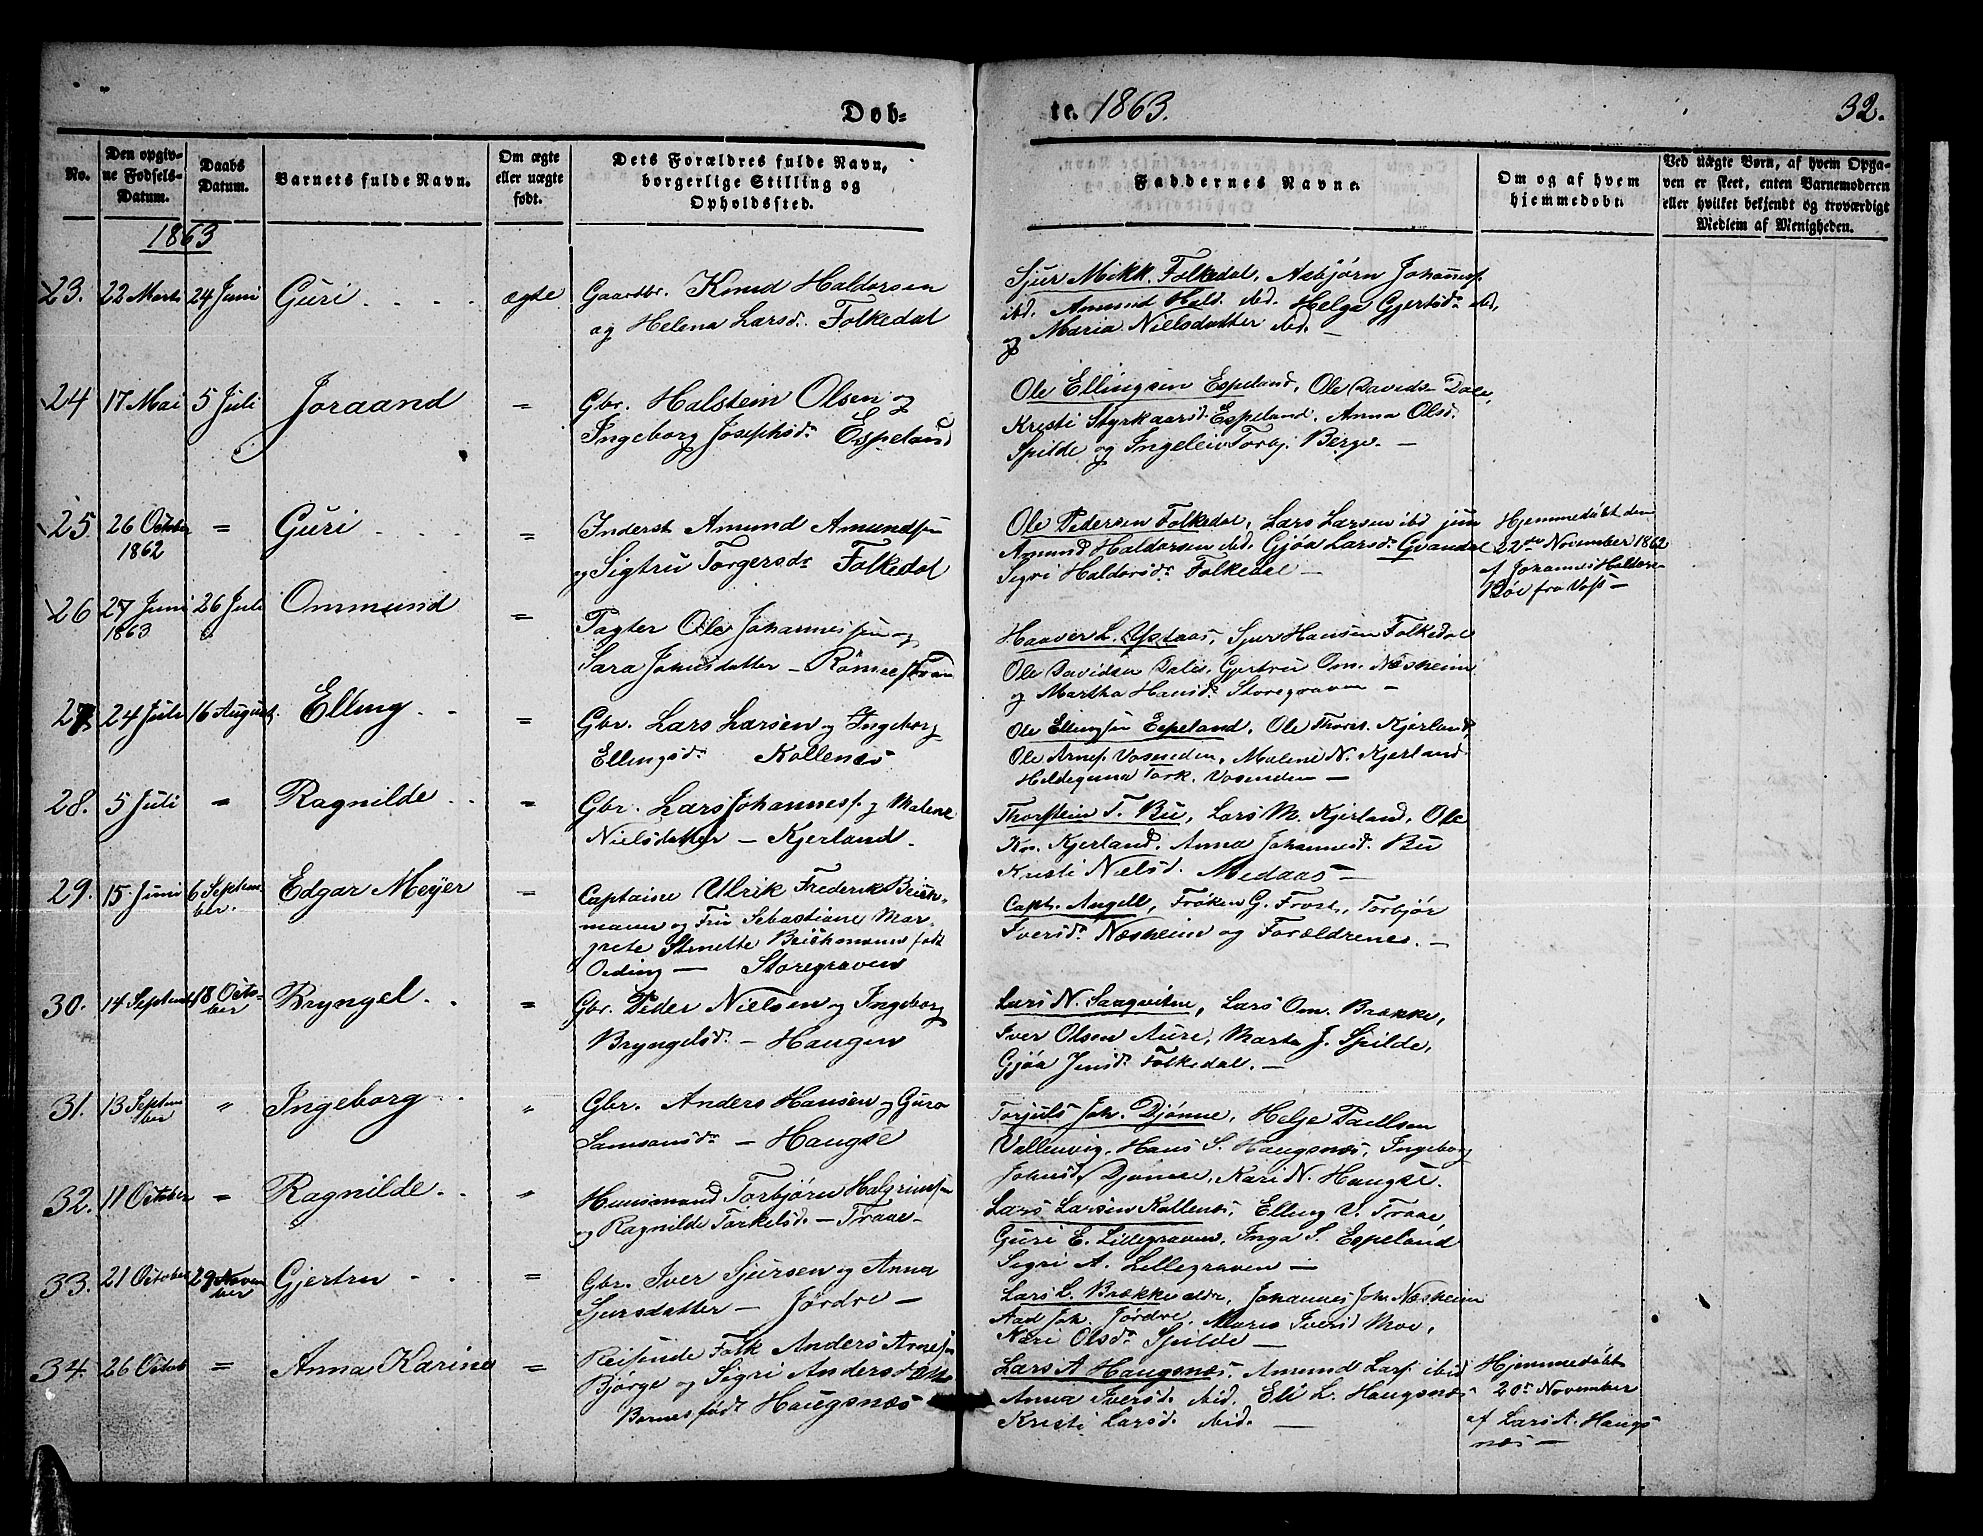 Døb-
te. 1863.
32.
No.
Den opgiv-
ne Fødsels-
Datum.
Daabs
Datum.
Barnets fulde Navn.
Om ægte
eller uægte
født.
Dets Forældres fulde Navn,
borgerlige Stilling og
Opholdssted.
Faddernes Navne.
Om og af hvem
hjemmedøbt.
Ved uægte Børn, af hvem Opga-
ven er skeet, enten Barnemoderen
eller hvilket bekjendt og troværdigt
Medlem af Menigheden.
1863
23. 22 Marts 24 Juni Guri ægte Gaardbr. Knud Haldorsen
og Helena Larsd. Folkedal
Sjur Mikk. Folkedal, Asbjørn Johannesf.
ibd. Amund Hald. ibd. Helga Gjertsd. ibd.
og Maria Nielsdatter ibd. —
24 17 Mai 5 Juli Joraand = Gbr. Halstein Olsen og
Ingeborg Josephsd. Espeland
Ole Ellingsen Espeland, Ole Davids- Dale,
Kristi Styrkaarsd. Espeland. Anna Olsd.
Spilde og Ingeleiv Torbj. Berge. —
25. 26 October = Guri = Inderst Amund Amundsen
1862
og Sigtru Torgersdr. Folkedal
Ole Pedersen Folkedal, Lars Larsen ibd jun
Amund Haldorsen ibd. Gjøa Larsd. Gvandal
Sigri Haldorsdr. Folkedal —
Hjemmedøbt den
22de November 1862
af Johannes Haldors-
Bøe fra Vos —
26 27 Juni 26 Juli Ommund = Pagter Ole Johannessen og
1863
Sara Johnsdatter —
Haaver L. Ystaas, Sjur Hansen Folkedal
Ole Davidsen Dale, Gjertru Om. Næsheim
og Martha Hansdr. Storegraven —
27 24 Juli 16 August. Elling = Gbr. Lars Larsen og Ingeborg
Ellingsdr. Kollenæs
Ole Ellingsen Espeland, Ole Thorst. Kjerland,
Ole Arnes. Vosneden, Malene N. Kjerland
Hildeguna Tork. Vosenden —
28. 5 Juli = Ragnilde = Gbr. Lars Johannesf. og Malene
Nielsdatter — Kjerland.
Thorstein T. Bu, Lars M. Kjerland, Ole
Kn. Kjerland. Anna Johannesd. Bu
Kristi Nielsd. Medaas —
29. 15 Juni 6 Septem- Edgar Meyer = Captaine Ulrik Frederik Beich-
ber.
mann og Fru Sebastiane Mar-
grete Stenette Beichmann født
Oeding — Storegraven
Capt. Angell, Frøken G. Frost, Torbjør
Iversdr. Næsheim og Forældrene. —
30. 14 Septemb 18 Octo- Bryngel = Gbr. Peder Nielsen og Ingeborg
ber
Bryngelsd. — Haugen
Lars N. Saaqvitne, Lars Om. Brække,
Iver Olsen Aure, Marta J. Spilde,
Gjøa Jensdr. Folkedal. —
31. 13 Septem " Ingeborg " Gbr. Anders Hansen og Guro
ber
Samsonsdr. — Haugse
Torjuls Joh. Djønne, Helje Paellsen
Vallevig, Hans S. Haugsnæs, Ingeborg
Johnsd. Djønne, Kari N. Haugse.
32. 11 October = Ragnilde " Huusmand Torbjørn Halgrimsen
og Ragnilde Torkelsd. — Traae —
Lars Larsen Kollenæs, Elling V. Traae,
Guri E. Lillegraven, Inga S. Espeland
Sigri A. Lillegraven —
33. 21 October 29 Novem Gjertru = Gbr. Iver Sjursen og Anna
ber
Sjursdatter — Jørdre —
Lars L. Brække ældr, Johannes Joh. Næsheim
Aad Joh. Jørdre, Maris Iversd Moe,
Kari Olsdr. Spilde —
34. 26 Octob = Anna Karine = Reisende Folk Anders Arnesen
Bjørge og Sigri Andersdatter
Barnes født Haugsnæs
Lars A Haugsnæs, Amund Larsf ibid
Anna Iversd. ibid, Eli L. Haugsnæs
Kristi Larsd. ibid. —
Hjemmedøbt
20de November
af Lars A. Haugs
næs —